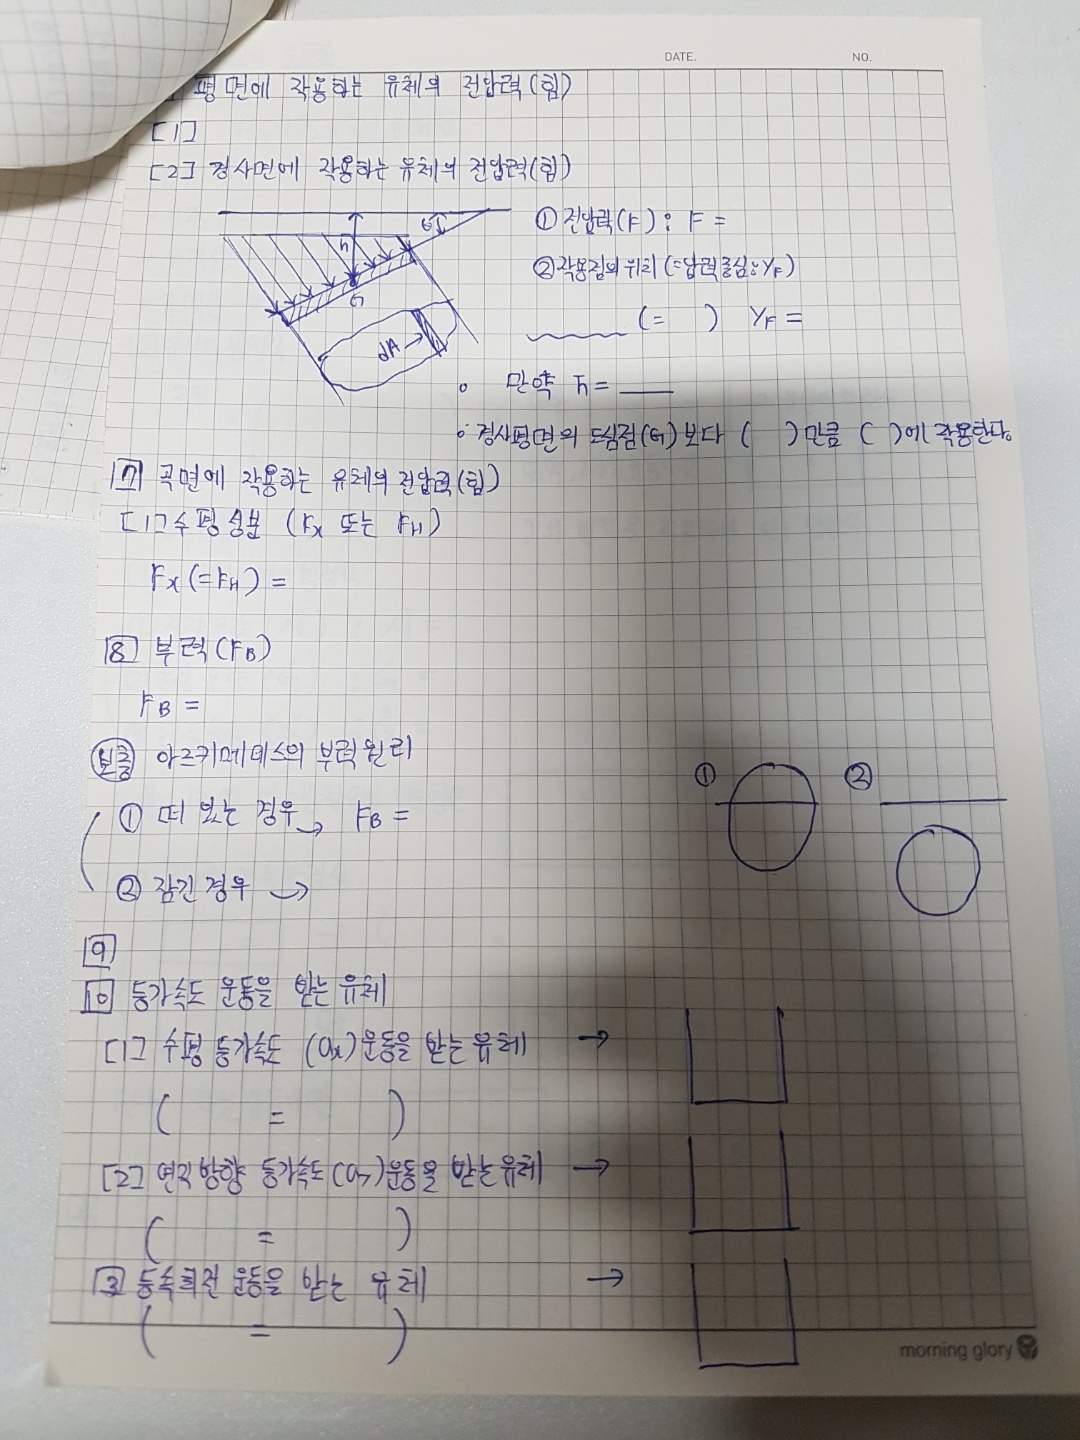 DATE. NO.
평면에 작용하는 유체의 전압력(힘)
[1]
[2] 경사면에 작용하는 유체의 전압력(힘)
① 전압력(F) : F =
②작용점의 위치(=압력중심 : yF)
(= ) yF =
G
dA
◦ 만약 h̄ =
◦ 경사평면의 도심점(G) 보다 ( )만큼 ( )에 작용한다.
7 곡면에 작용하는 유체의 전압력(힘)
[1] 수평성분 (Fx 또는 FH)
Fx(=FH) =
8 부력(FB)
FB =
보충 아르키메데스의 부력원리
① 떠 있는 경우 → FB =
② 잠긴 경우 →
① ②
9
10 등가속도 운동을 받는 유체
[1] 수평 등가속도 (ax)운동을 받는 유체 →
( = )
[2] 연직방향 등가속도(ay)운동을 받는 유체 →
( = )
3 등속회전 운동을 받는 유체 →
( = )
morning glory